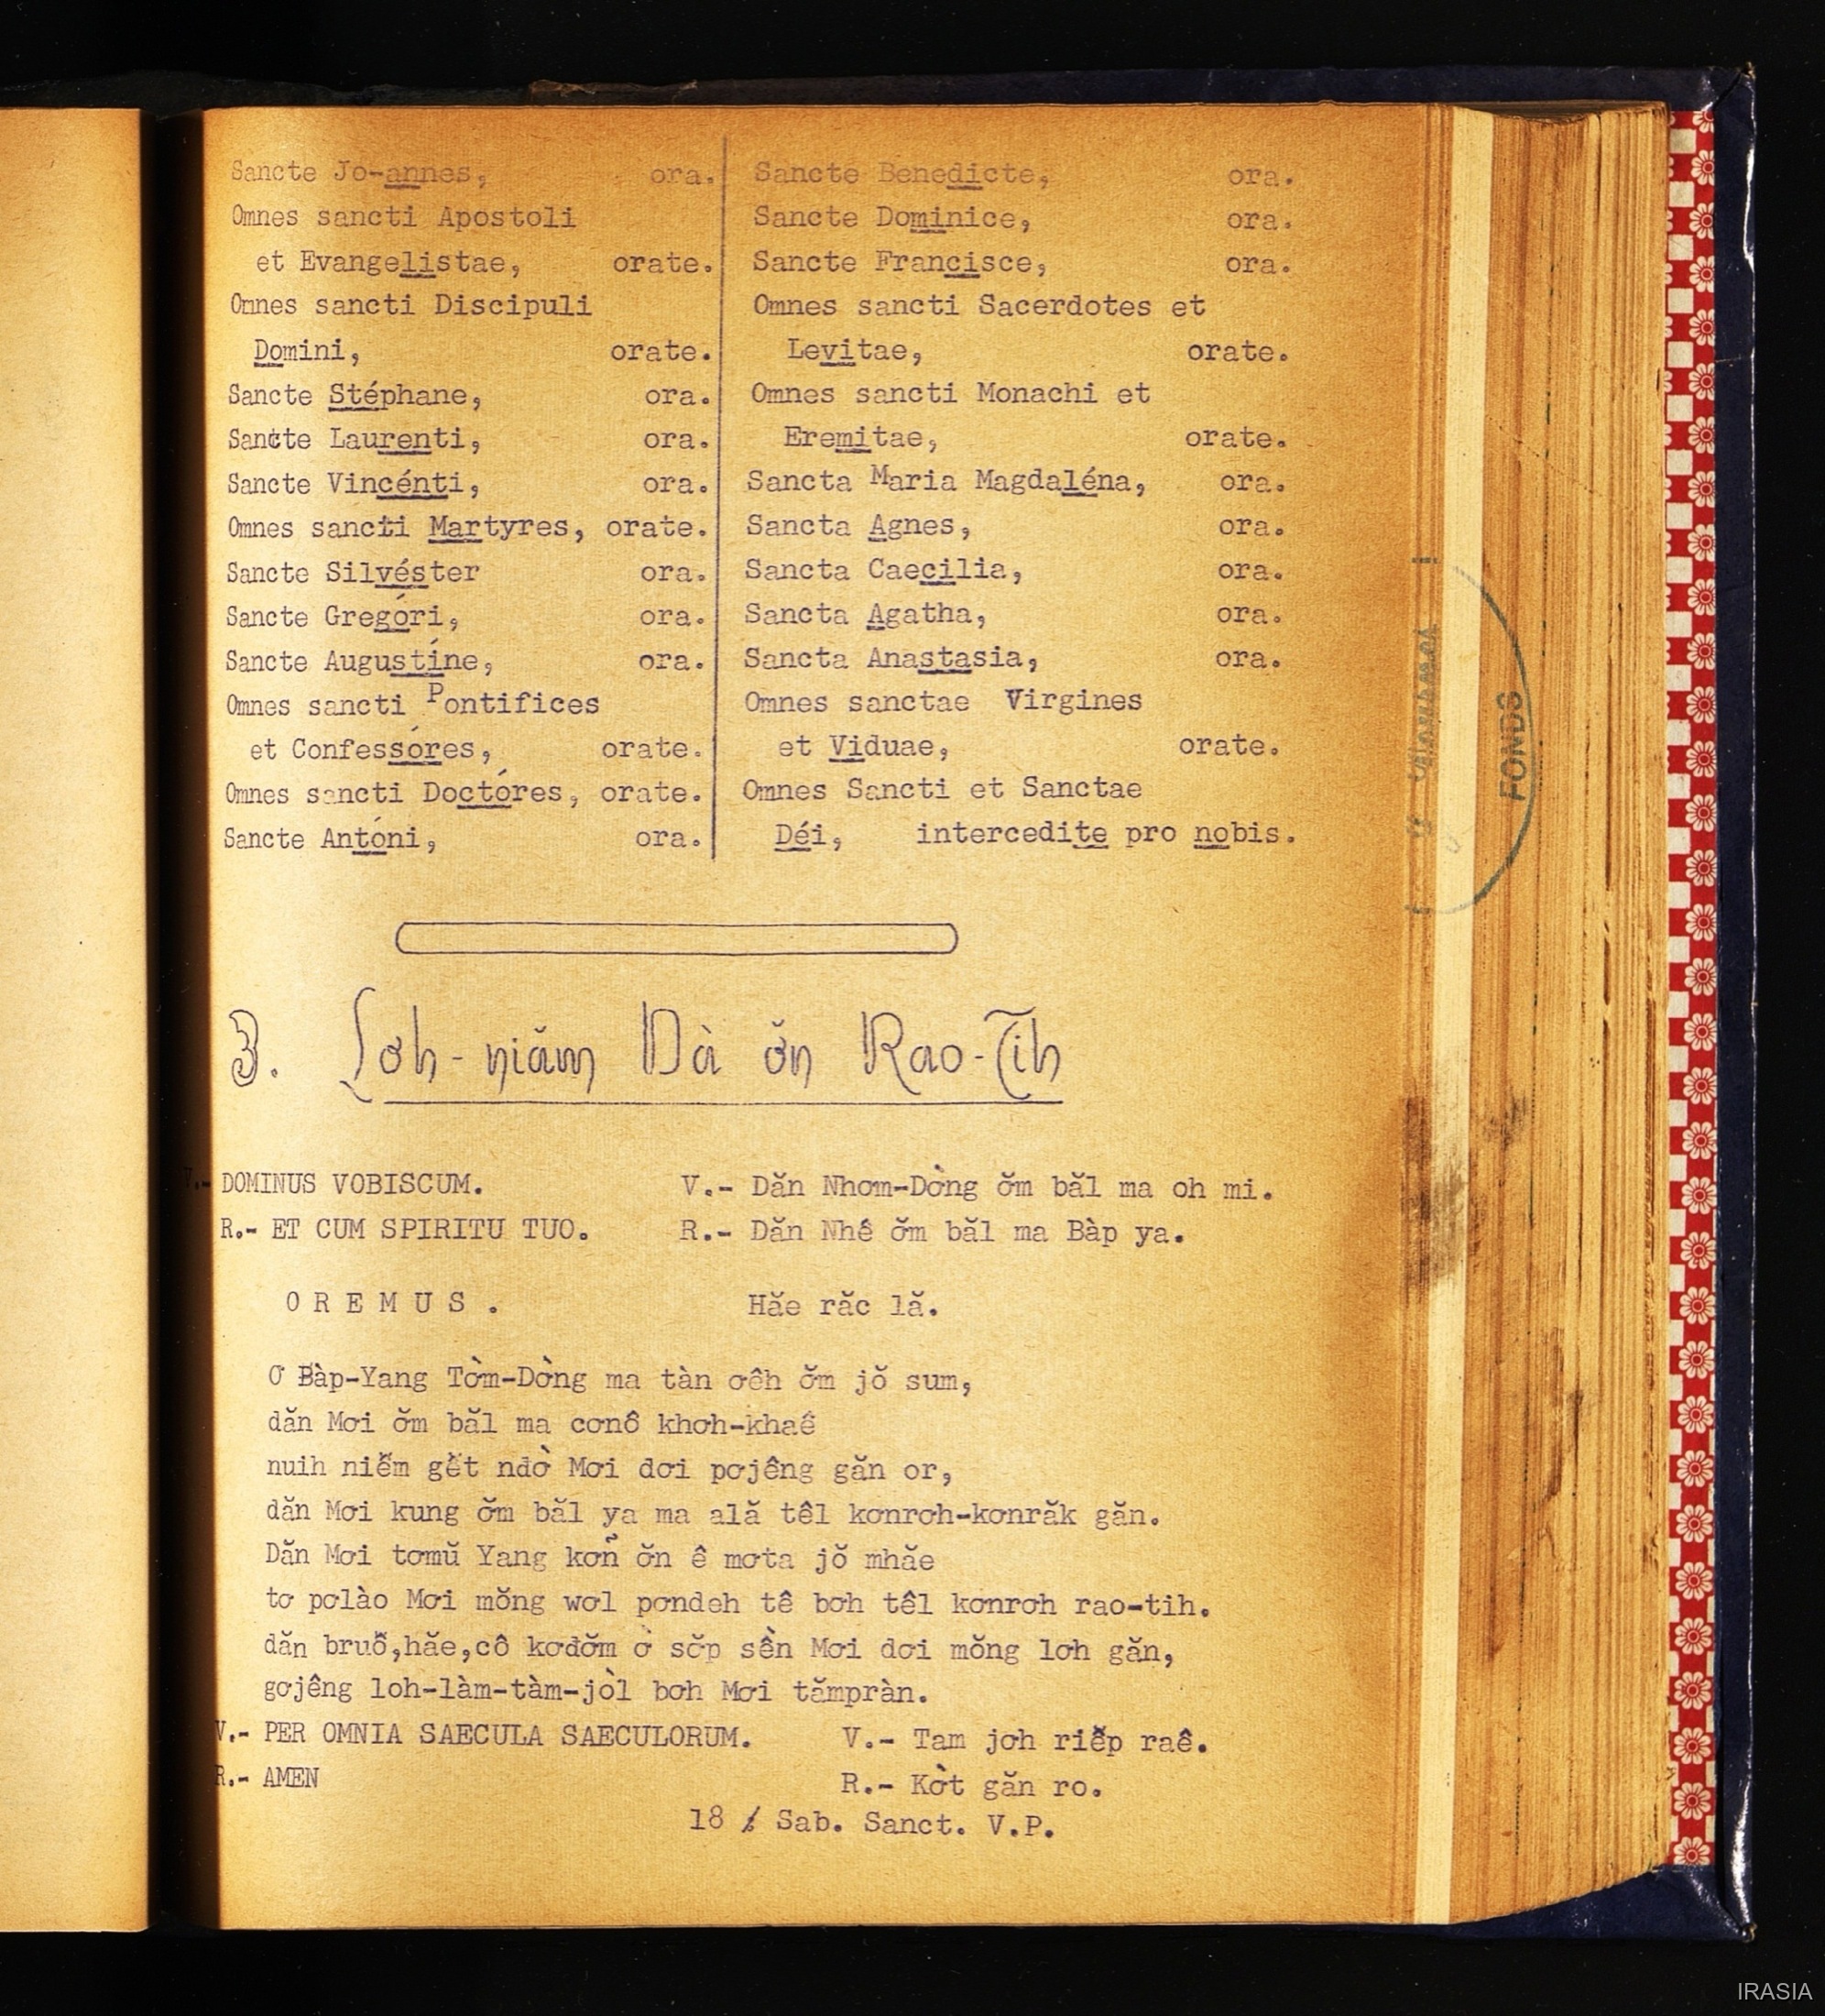 Sancte Jo-annes, ora.
Omnes sancti Apostoli
et Evangelistae, orate.
Omnes sancti Discipuli
Domini, orate.
Sancte Stéphane, ora.
Sancte Laurenti, ora.
Sancte Vincénti, ora.
Omnes sancti Martyres, orate.
Sancte Silvéster ora.
Sancte Gregóri, ora.
Sancte Augustíne, ora.
Omnes sancti Pontifices
et Confessóres, orate.
Omnes sancti Doctóres, orate.
Sancte Antóni, ora.
Sancte Benedicte, ora.
Sancte Dominice, ora.
Sancte Francisce, ora.
Omnes sancti Sacerdotes et
Levitae, orate.
Omnes sancti Monachi et
Eremitae, orate.
Sancta Maria Magdaléna, ora.
Sancta Agnes, ora.
Sancta Caecilia, ora.
Sancta Agatha, ora.
Sancta Anastasia, ora.
Omnes sanctae Virgines
et Viduae, orate.
Omnes Sancti et Sanctae
Déi, intercedite pro nobis.
3. Lơh-niăm Dà ơ̆n Rao-Tih
V.- DOMINUS VOBISCUM. V.- Dăn Nhơm-Dờng ơ̆m băl ma oh mi.
R.- ET CUM SPIRITU TUO. R.- Dăn Nhê ơ̆m băl ma Bàp ya.
OREMUS. Hăe răc lă.
Ơ Bàp-Yang Tờm-Dờng ma tàn ơêh ơ̆m jŏ sum,
dăn Mơi ơ̆m băl ma cơnô khơh-khaê
nuih niê̆m gê̆t ndờ Mơi dơi pơjêng găn or,
dăn Mơi kung ơ̆m băl ya ma ală têl kơnrơh-kơnrăk găn.
Dăn Mơi tơmŭ Yang kơn ơ̆n ê mơta jŏ mhăe
tơ pơlào Mơi mŏng wơl pơndeh tê bơh têl kơnrơh rao-tih.
dăn bruô̆,hăe,cô kơđơ̆m ờ sơ̆p sền Mơi dơi mŏng lơh găn,
gơjêng loh-làm-tàm-jòl bơh Mơi tămpràn.
V.- PER OMNIA SAECULA SAECULORUM. V.- Tam jơh riê̆p raê.
R.- AMEN R.- Kờt găn ro.
18 / Sab. Sanct. V.P.
FONDS
IRASIA